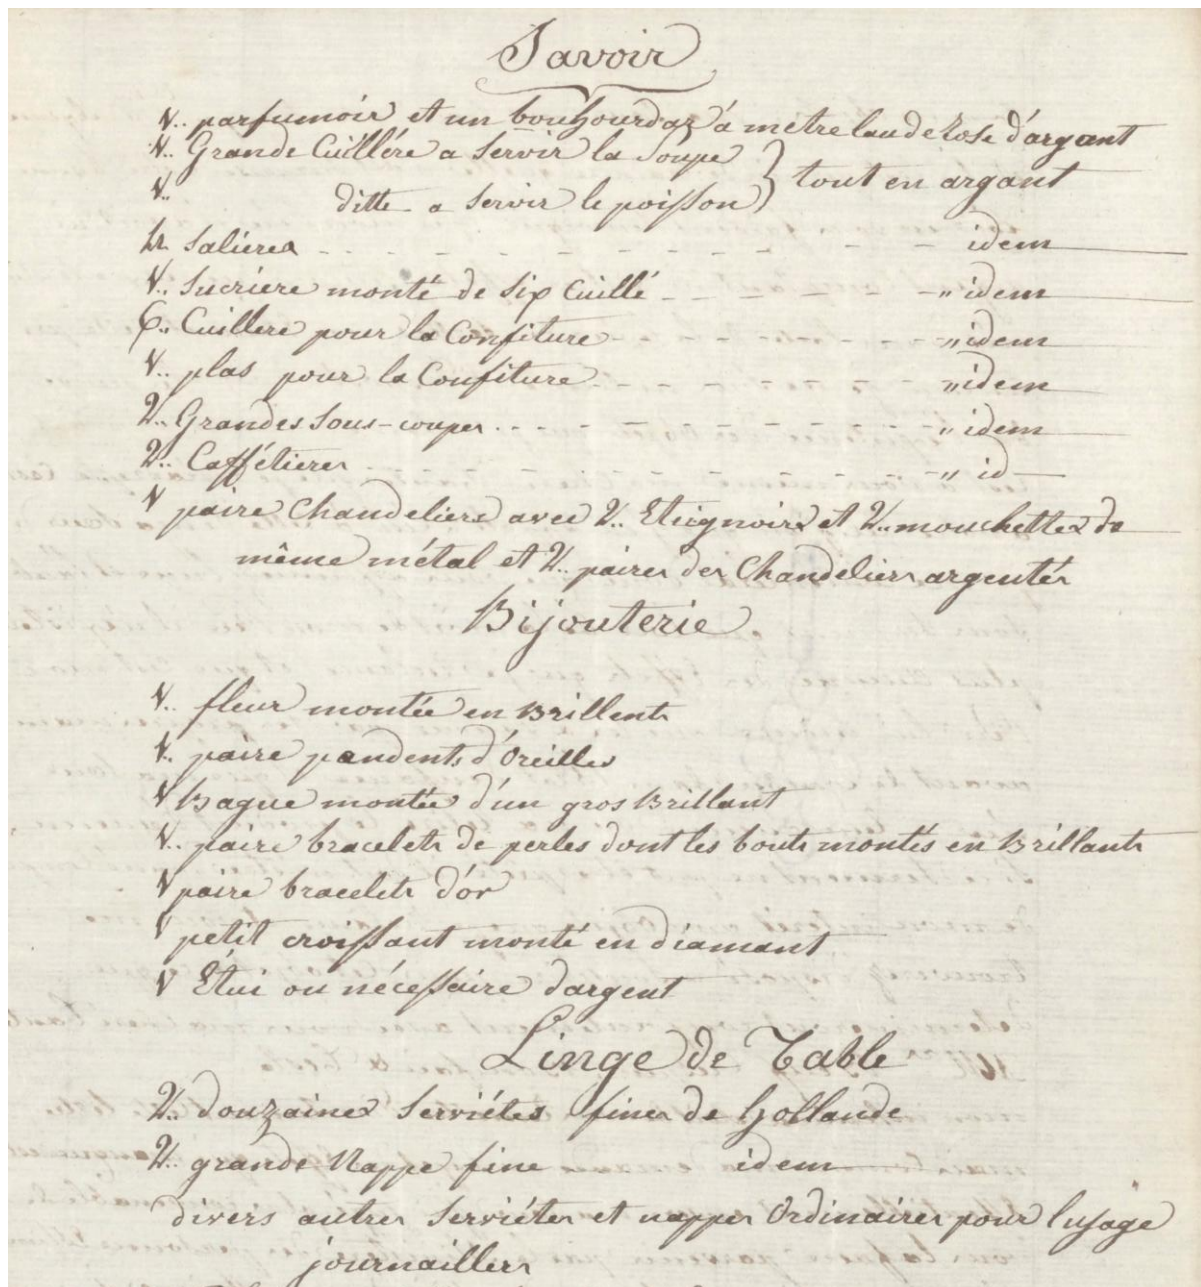 Savoir
1.. parfumoir et un bouhourdaz à metre laude Rose d'argant
1.. Grande Cuillére a Servir la Soupe } tout en argant
1.. ditte a Servir le poisson
Salieres - - - - - - - - - idem
1.. Sucriere monté de Six Cuillé - - - - - " idem
6.. Cuillere pour la Confiture - - - - - " idem
1.. plas pour la Confiture - - - - - - " idem
2.. Grandes Sous-coupes - - - - - - " idem
2.. Caffétieres - - - - - - - - " id
1 paire Chandeliers avec 2.. Eteignoirs et 2.. mouchettes de
même métal et 2.. paires des Chandeliers argentés
Bijouterie
1.. fleur montée en Brillents
1.. paire pandents d'Oreilles
1 Bague montée d'un gros Brillant
1.. paire bracelets de perles dont les bouts montés en Brillants
1 paire bracelets d'or
1 petit croissant monté en diamant
1 Étui ou nécessaire d'argent
Linge de Table
2.. douzaines Serviétes fines de Hollande
2.. grande Nappe fine idem
divers autres Serviétes et nappes Ordinaires pour l'usage
journaillers